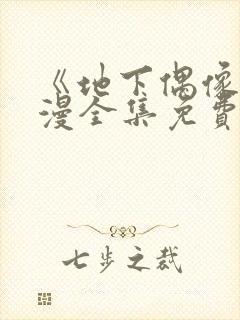 《地下偶像
漫全集免費
七步之裁